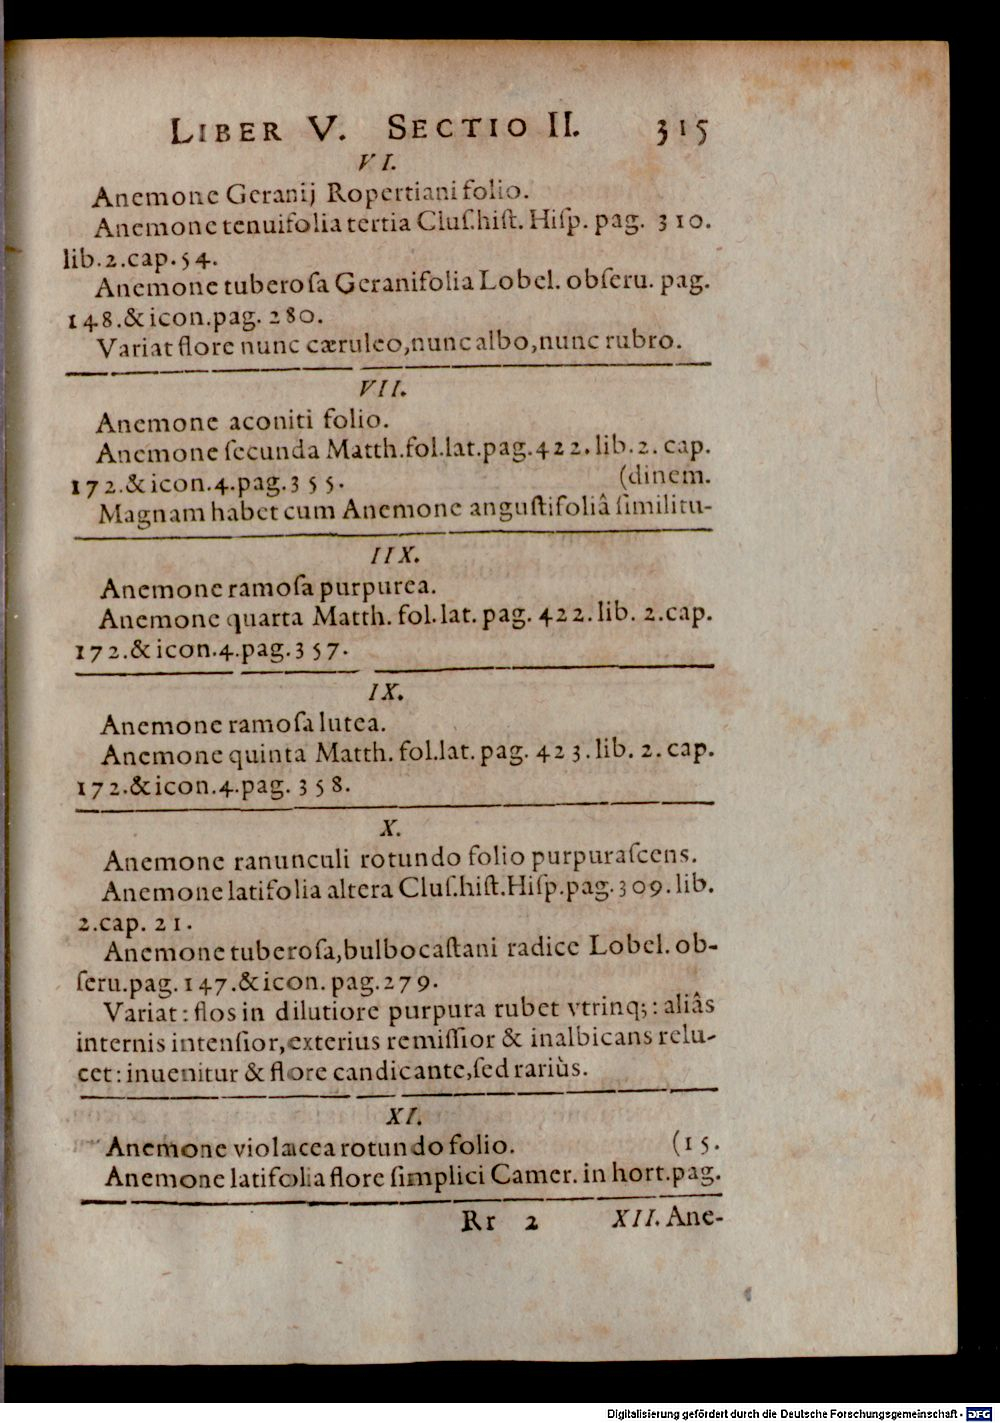 LIBER V. SECTIO II. 315
VI.
Anemone Geranij Ropertiani folio.
Anemone tenuifolia tertia Cluſ.hiſt. Hiſp. pag. 310.
lib.2.cap.54.
Anemone tuberoſa Geranifolia Lobel. obſeru. pag.
148.& icon.pag. 280.
Variat flore nunc cæruleo,nunc albo,nunc rubro.
VII.
Anemone aconiti folio.
Anemone ſecunda Matth.fol.lat.pag.422.lib.2. cap.
172.& icon.4.pag.355. (dinem.
Magnam habet cum Anemone anguſtifoliâ ſimilitu-
IIX.
Anemone ramoſa purpurea.
Anemone quarta Matth. fol.lat. pag. 422.lib. 2.cap.
172.& icon.4.pag.357.
IX.
Anemone ramoſa lutea.
Anemone quinta Matth. fol.lat. pag. 423.lib. 2.cap.
172.& icon.4.pag. 358.
X.
Anemone ranunculi rotundo folio purpuraſcens.
Anemone latifolia altera Cluſ.hiſt.Hiſp.pag.309.lib.
2.cap. 21.
Anemone tuberoſa,bulbocaſtani radice Lobel. ob-
ſeru.pag.147.& icon. pag.279.
Variat: flos in dilutiore purpura rubet vtrinq;: aliâs
internis intenſior,exterius remiſſior & inalbicans relu-
cet: inuenitur & flore candicante,ſed rariùs.
XI.
Anemone violacea rotundo folio. (15.
Anemone latifolia flore ſimplici Camer. in hort.pag.
Rr 2 XII. Ane-
Digitalisierung gefördert durch die Deutsche Forschungsgemeinschaft - DFG